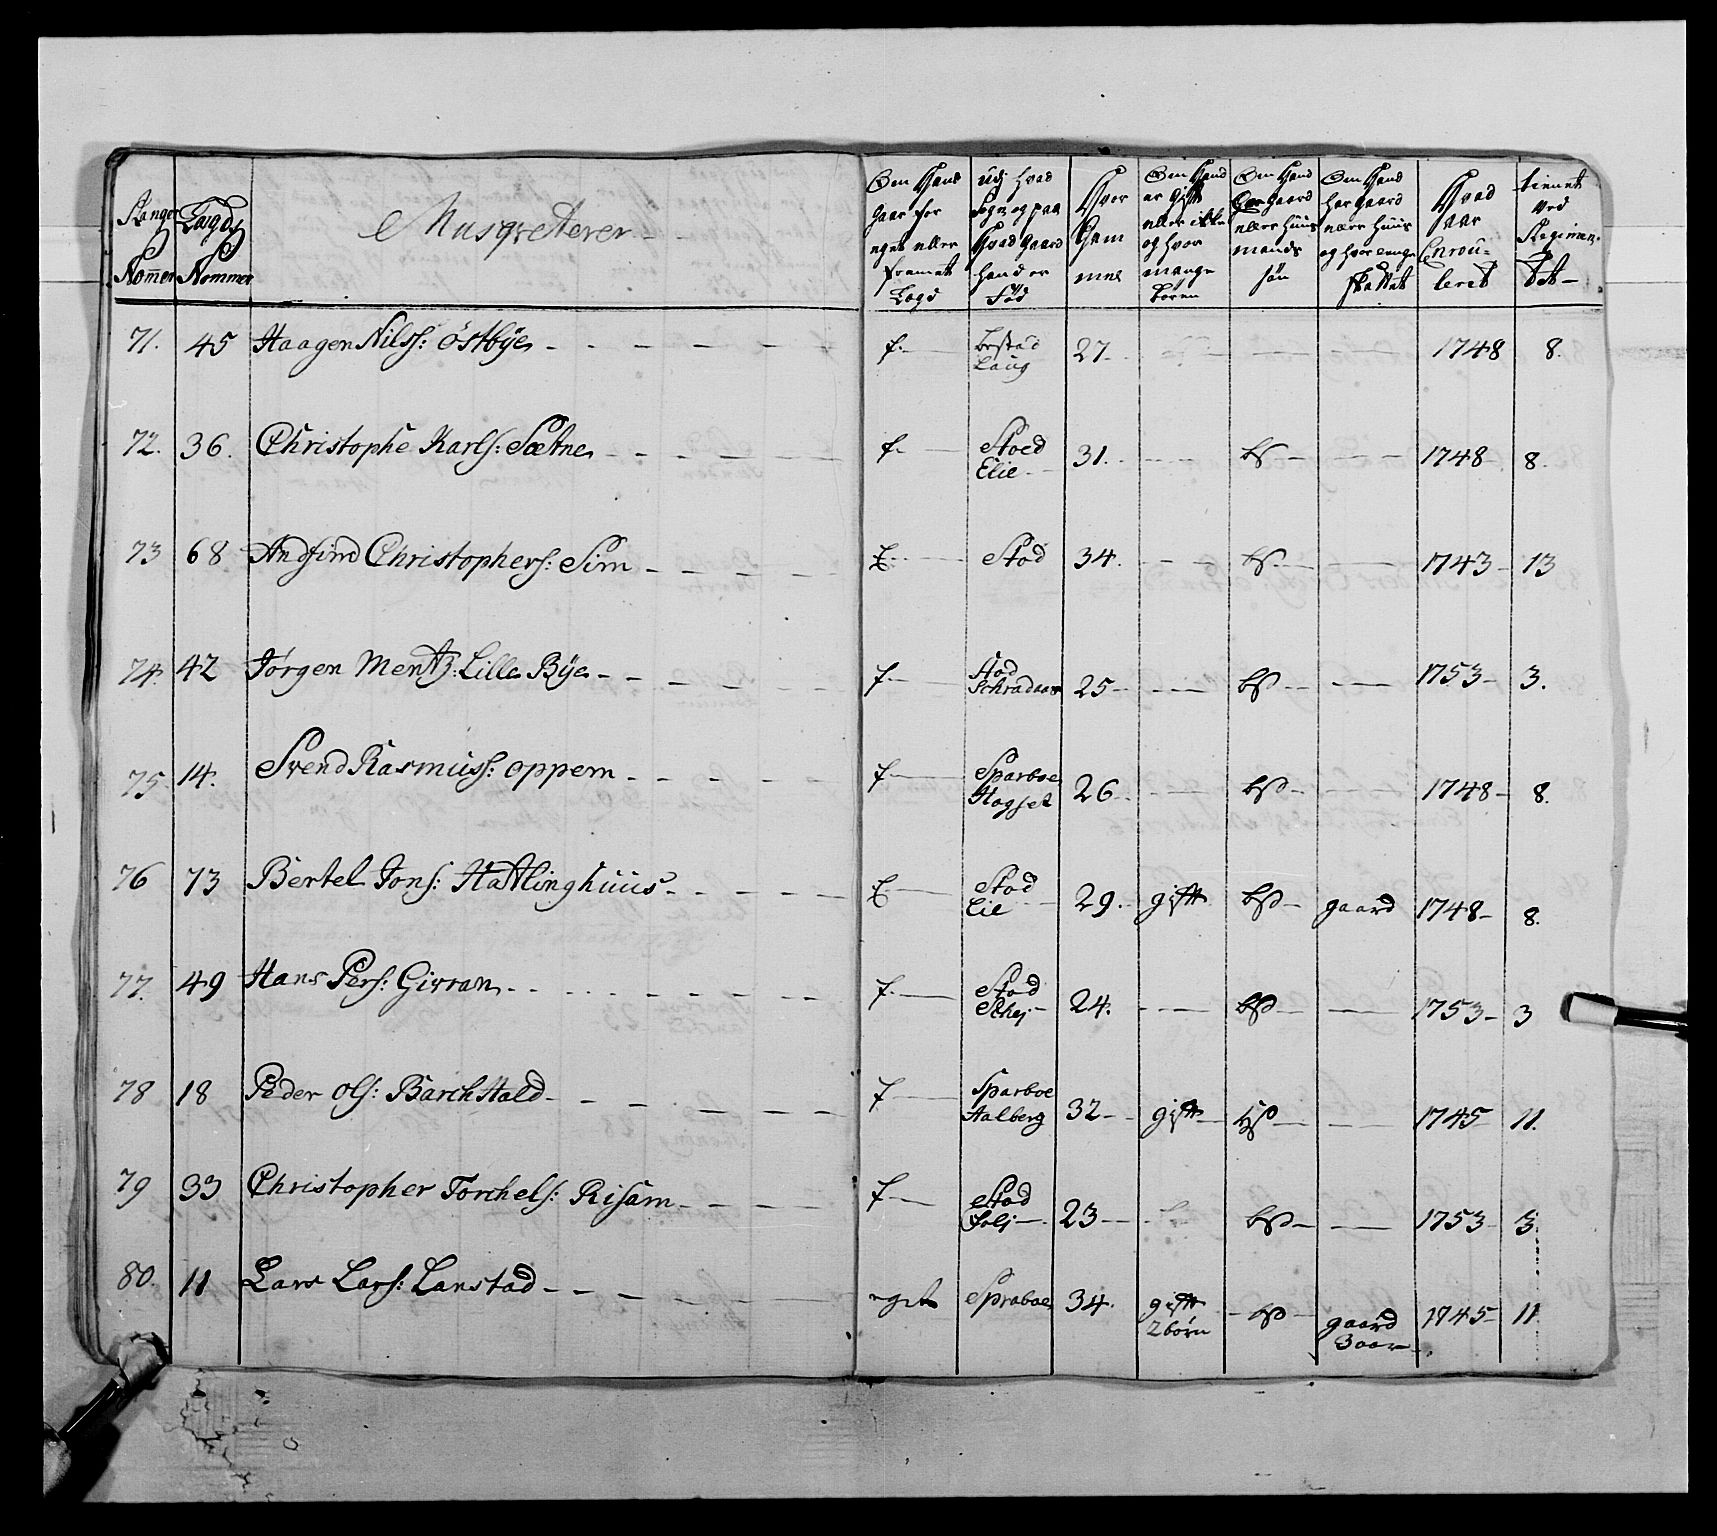 Rangs Nomer
Laugds Nommer
Musqveterer
Om Hand gaar for eget eller fremet Lagd
udj hvad Sogn og paa hvad gaard hand er fød
Hvor Gam mel
Om Hand er Gift eller ikke og hvor mange børen
Om Hand Er gaard eller Huus mands søn
Om Hand har gaard eller Huus og hvor lenge skattet
Hvad aar Enrou- leret
tienet ved Regimen- tet
71. 45 Haagen Nilss: Østbye f. Laug 27 1748 8.
72. 36. Christophe Karls: Sætne f. Stoed Elie 31. bs 1748 8.
73 68 Andfind Christophers: Sim E. Stod 34. bs 1743 13
74. 42 Jørgen Mentz: Lille Bye f. Stod Schradaas 25 bs 1753 3.
75 14. Svend Rasmuss: oppem f. Sparboe Hogset 26 bs 1748 8.
76 73 Bertel Jons: Hatlinghuus E. Stod Eie 29. gift bs gaard 1748 8.
77. 49 Hans Pers: Girran f. Stod Schej 24. bs 1753 3
78 18 Peder Ols: BarchHald f Sparboe Aalberg 32 gift 1745 11.
79 33 Christopher Torchels: Risam f Stod Folj 23 bs 1753 3
80. 11 Lars Lars: Lanstad eget Spraboe 34. gift 2 børn bs gaard 3 aar 1745 11